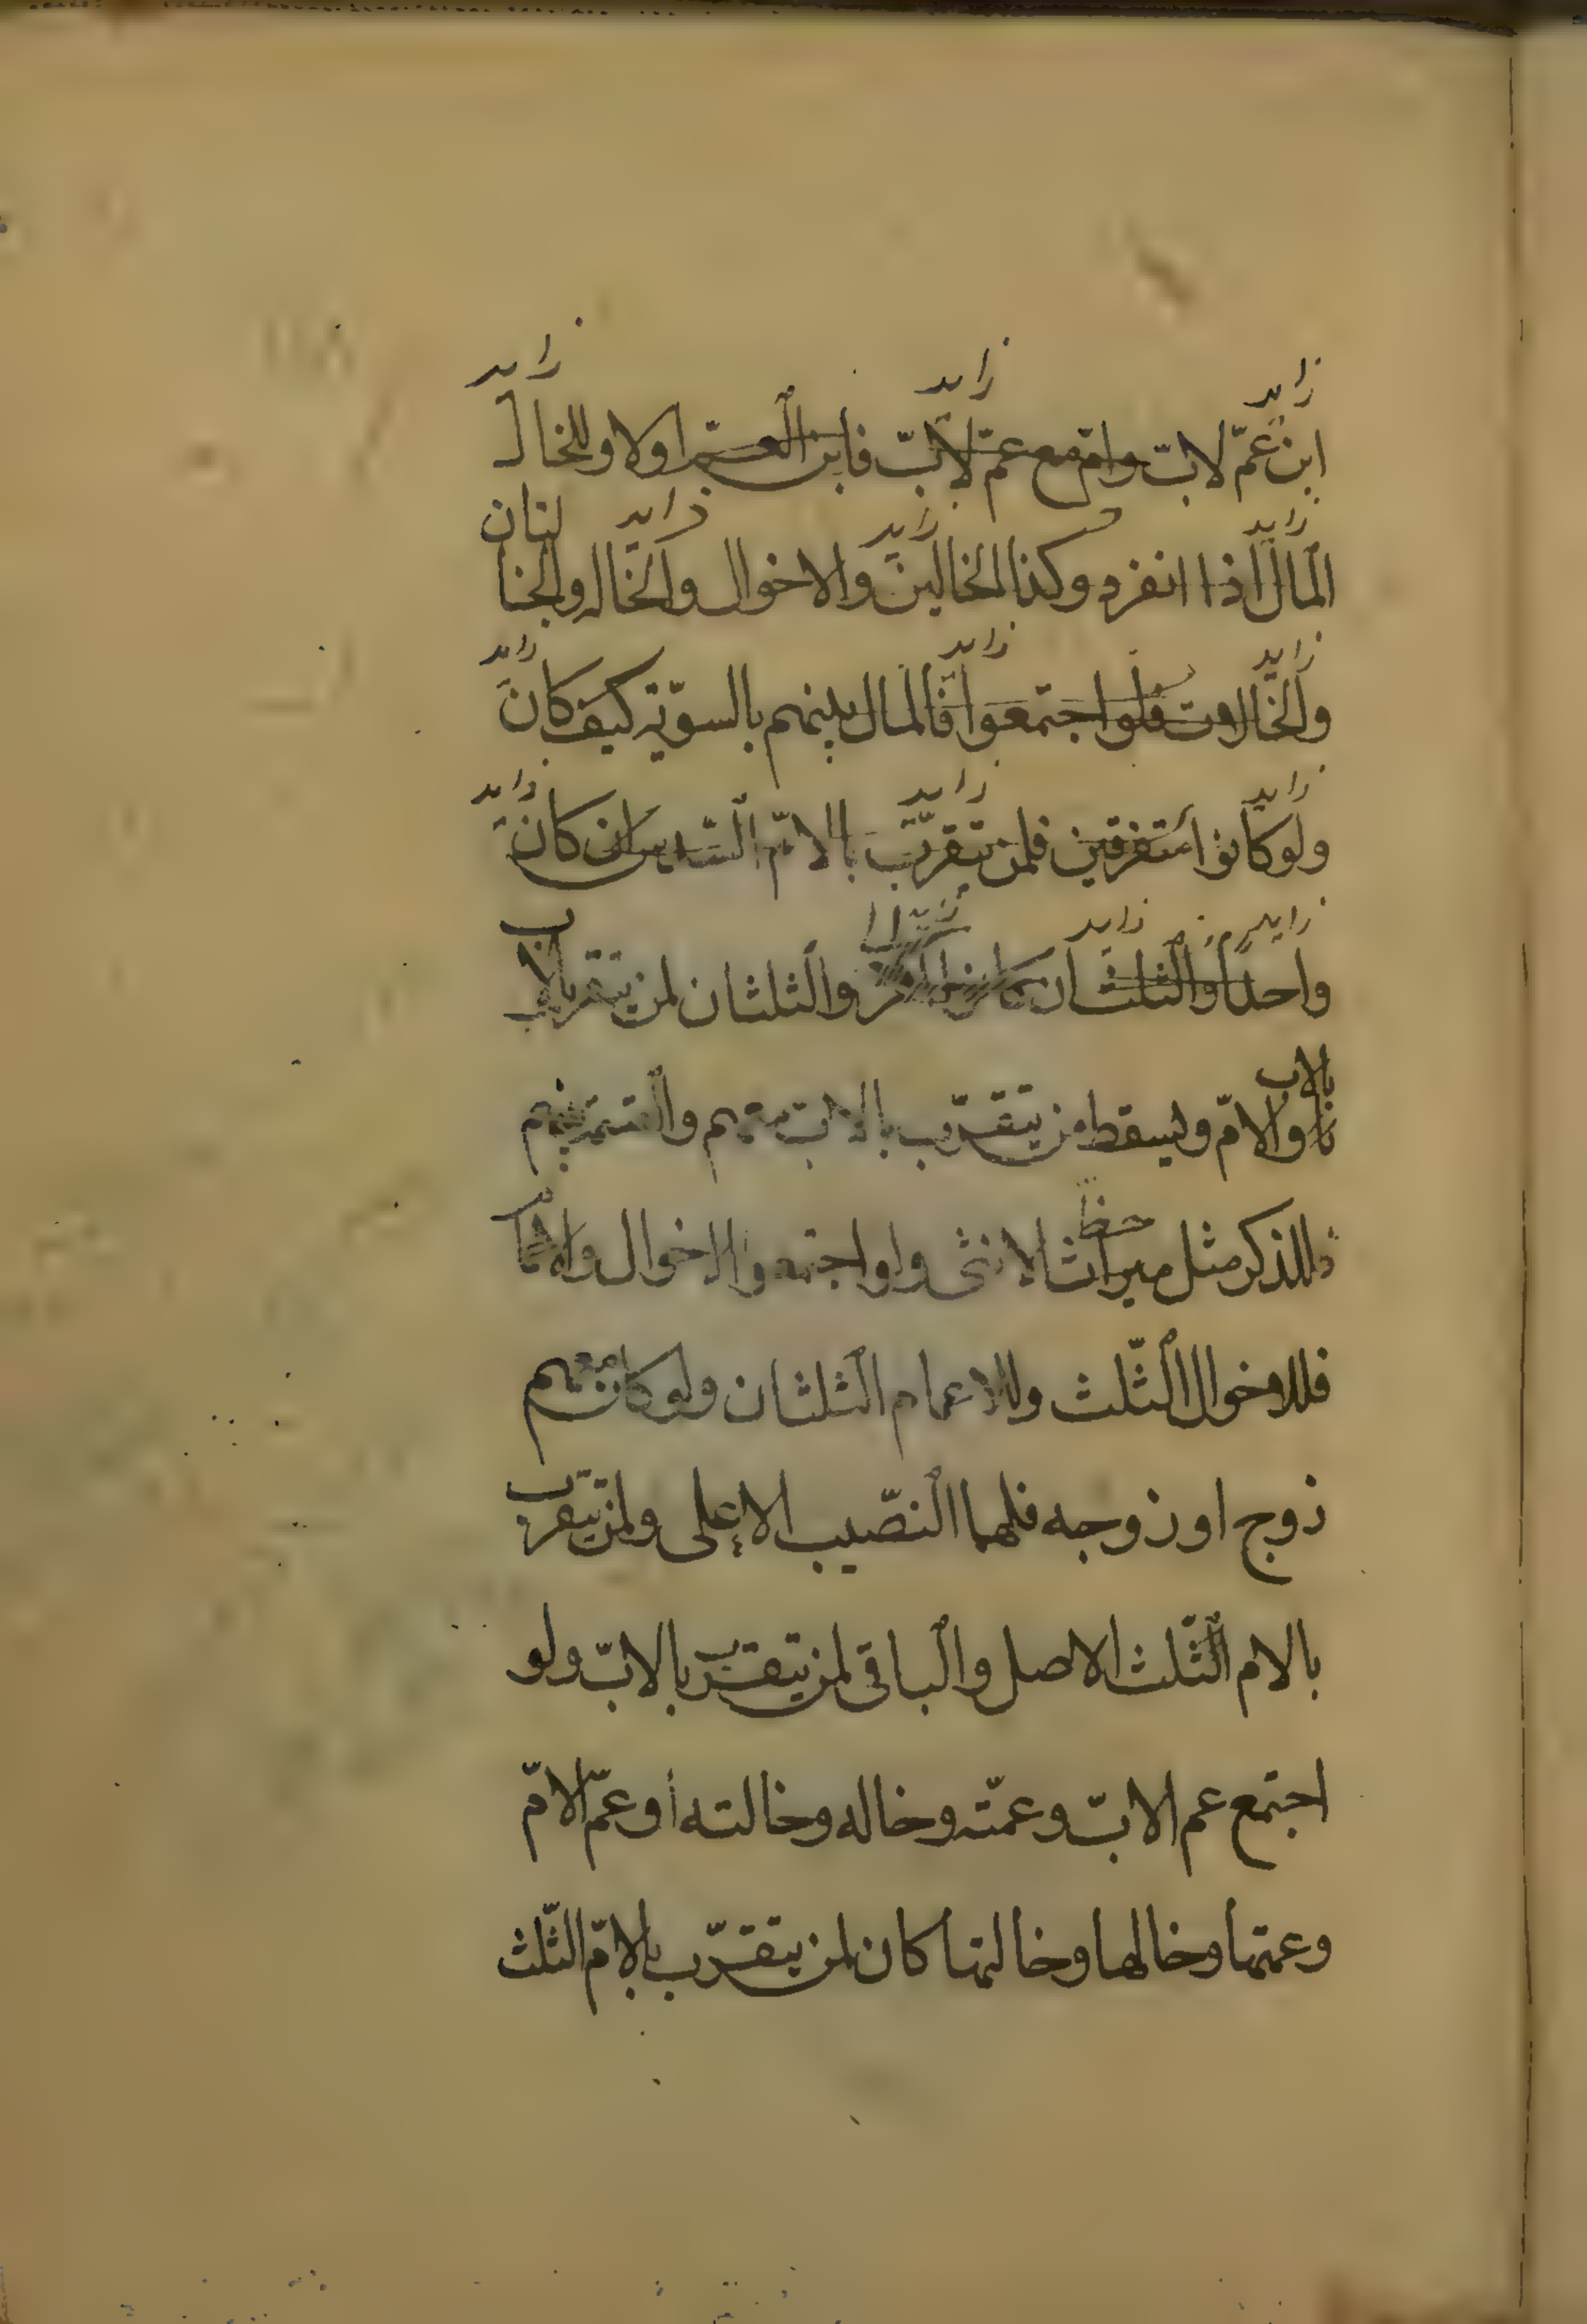 زايد زايد زايد
ابن عمّ لابّ وامّ مع عمّ لابّ فابن العمّ اولا وللخال
زايد زايد زايد لتان
المال اذا انفرد وكذا الخالين والاخوال والخاله والخا
زايد زايد زايد
والخالات فلو اجتمعوا فالمال بينهم بالسويّة كيف كان
زايد زايد زايد
ولو كانوا متفرقين فلمن يتقرّب بالامّ السّدس ان كان
زايد زايد
واحدا والثلث ان كانوا اكثر والثلثان لمن يتقرب بالاب
بالاب
والامّ ويسقط من يتقرّب بالاب منهم والقسمة بينهم
حظ
للذكر مثل ميراث الانثى ولو اجتمع الاخوال والاعما
فللاخوال الثّلث وللاعمام الثلثان ولو كان معهم
زوج او زوجه فلهما النصّيب الاعلى ولمن يتقرب
بالام الثّلث الاصل والباقى لمن يتقرب بالابّ ولو
اجتمع عم الابّ وعمّته وخاله وخالته أو عمّ الامّ
وعمتها وخالها وخالتها كان لمن يتقرّب بالامّ الثّلث